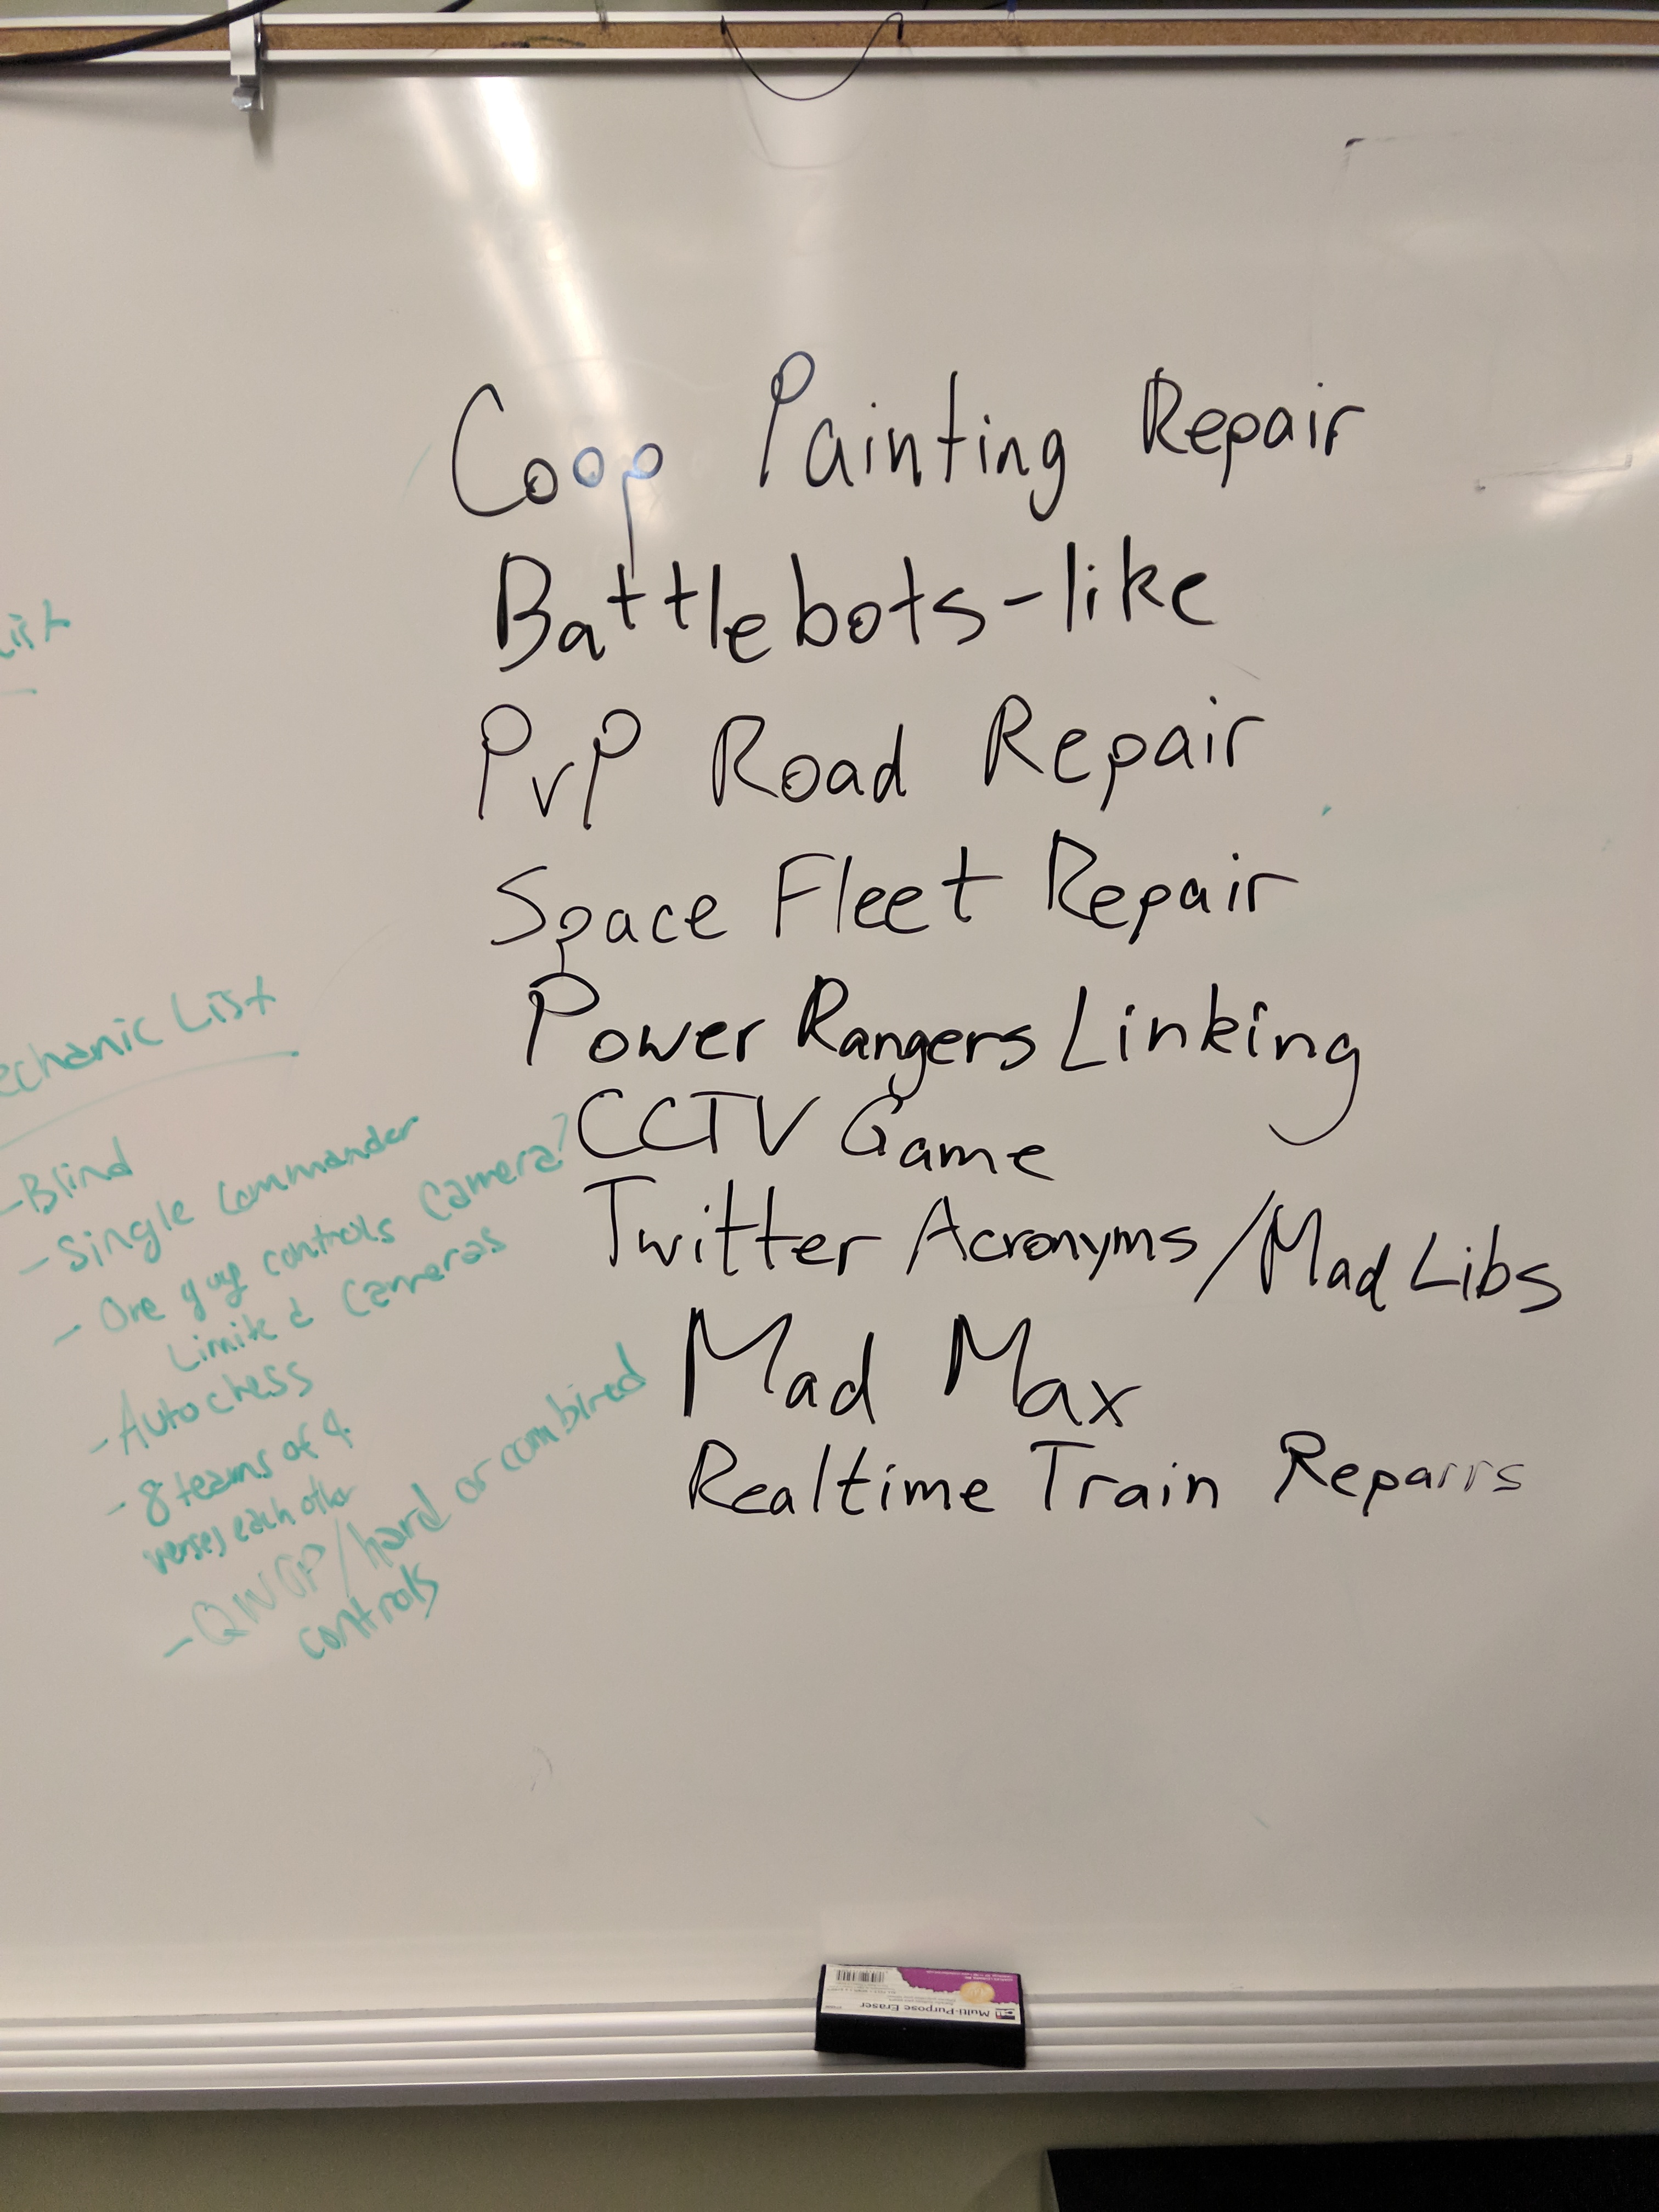 Coop Painting Repair
Battlebots-like
PvP Road Repair
Space Fleet Repair
Power Rangers Linking
CCTV Game
Twitter Acronyms/Mad Libs
Mad Max
Realtime Train Repairs
List
echanic List
-Blind
-Single Commander
- One guy controls Camera?
Limited Cameras
-Autochess
- 8 teams of 4
verses each other
-QWOP/hard or combined
controls
Multi-Purpose Eraser